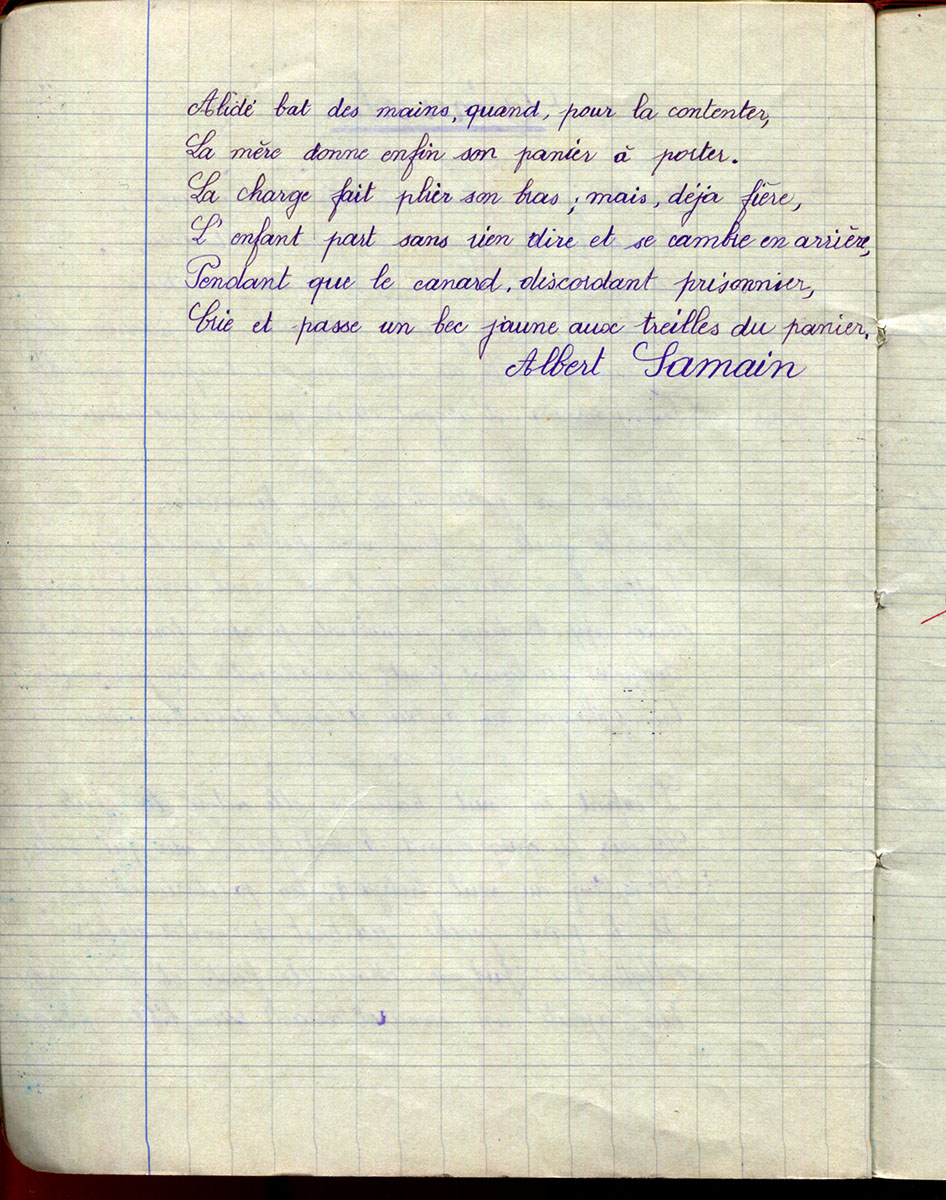 Alidé bat des mains, quand, pour la contenter,
La mère donne enfin son panier à porter.
La charge fait plier son bras ; mais, déja fière,
L'enfant part sans rien dire et se cambre en arrière,
Pendant que le canard, discordant prisonnier,
Crie et passe un bec jaune aux treilles du panier.
Albert Samain